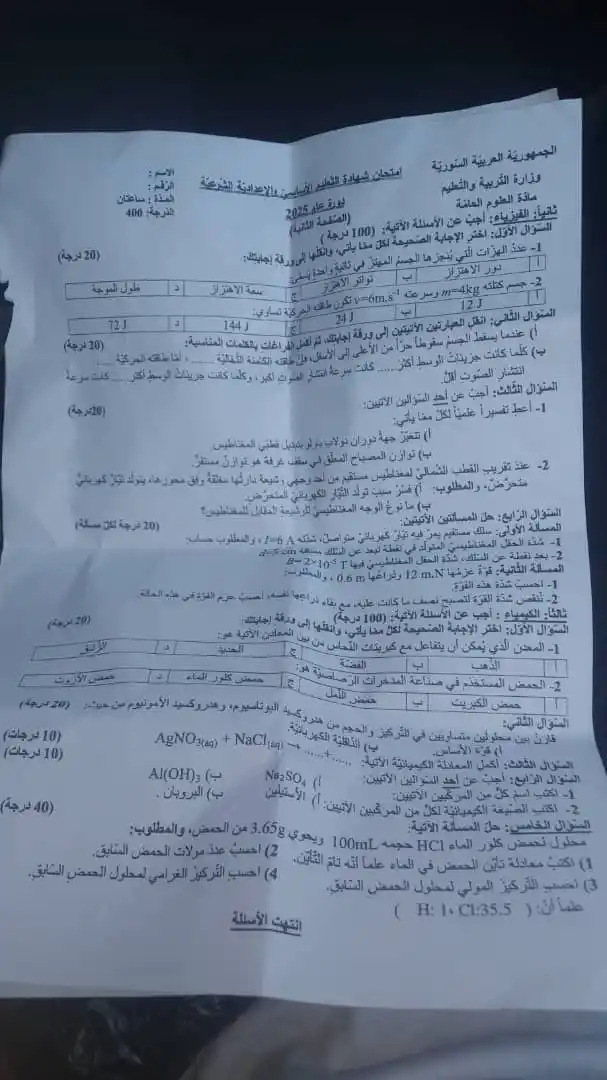 الجمهورية العربية السورية
وزارة التربية والتعليم
مادة العلوم العامة
امتحان شهادة التعليم الأساسي والإعدادية الشرعية
دورة عام 2025
(الصفحة الثانية)
الاسم :
الرقم :
المدة : ساعتان
الدرجة: 400
ثانياً: الفيزياء: أجب عن الأسئلة الآتية: (100 درجة)
السؤال الأول: اختر الإجابة الصحيحة لكل مما يأتي، وانقلها إلى ورقة إجابتك: (20 درجة)
1- عدد الهزات التي ينجزها الجسم المهتز في ثانية واحدة يسمى
أ دور الاهتزاز ب تواتر الاهتزاز ج سعة الاهتزاز د طول الموجة
2- جسم كتلته m=4kg وسرعته v=6m.s⁻¹ تكون طاقته الحركية تساوي:
أ 12 J ب 24 J ج 144 J د 72 J
السؤال الثاني: انقل العبارتين الآتيتين إلى ورقة إجابتك، ثم أكمل الفراغات بالكلمات المناسبة: (20 درجة)
أ) عندما يسقط الجسم سقوطاً حراً من الأعلى إلى الأسفل، فإن طاقته الكامنة الثقالية ......، أما طاقته الحركية ......
ب) كلما كانت جزيئات الوسط أكثر ...... كانت سرعة انتشار الصوت أكبر، وكلما كانت جزيئات الوسط أكثر ...... كانت سرعة
انتشار الصوت أقل.
السؤال الثالث: أجب عن أحد السؤالين الآتيين: (20درجة)
1- أعط تفسيراً علمياً لكل مما يأتي:
أ) تتغير جهة دوران دولاب بارلو بتبديل قطبي المغناطيس.
ب) توازن المصباح المعلق في سقف غرفة هو توازن مستقر.
2- عند تقريب القطب الشمالي لمغناطيس مستقيم من أحد وجهي وشيعة دارتها مغلقة وفق محورها، يتولد تيار كهربائي
متحرض، والمطلوب: أ) فسر سبب تولد التيار الكهربائي المتحرض.
ب) ما نوع الوجه المغناطيسي للوشيعة المقابل للمغناطيس؟
السؤال الرابع: حل المسألتين الآتيتين: (20 درجة لكل مسألة)
المسألة الأولى: سلك مستقيم يمر فيه تيار كهربائي متواصل، شدته I=6 A، والمطلوب حساب:
1- شدة الحقل المغناطيسي المتولد في نقطة تبعد عن السلك مسافة
2- بعد نقطة عن السلك، شدة الحقل المغناطيسي فيها B= 2×10⁻⁵ T
المسألة الثانية: قوة عزمها 12 m.N وذراعها 0.6 m، والمطلوب:
1- احسب شدة هذه القوة.
2- تنقص شدة القوة لتصبح نصف ما كانت عليه، مع بقاء ذراعها نفسه، احسب عزم القوة في هذه الحالة.
ثالثاً: الكيمياء : أجب عن الأسئلة الآتية: (100 درجة)
السؤال الأول: اختر الإجابة الصحيحة لكل مما يأتي، وانقلها إلى ورقة إجابتك: (20 درجة)
1- المعدن الذي يمكن أن يتفاعل مع كبريتات النحاس من بين المعادن الآتية هو:
أ الذهب ب الفضة ج الحديد د الزئبق
2- الحمض المستخدم في صناعة المدخرات الرصاصية هو:
أ حمض الكبريت ب حمض النمل ج حمض كلور الماء د حمض الآزوت
السؤال الثاني:
قارن بين محلولين متساويين في التركيز والحجم من هدروكسيد البوتاسيوم، وهدروكسيد الأمونيوم من حيث: (20 درجة)
أ) قوة الأساس. ب) الناقلية الكهربائية.
السؤال الثالث: أكمل المعادلة الكيميائية الآتية: AgNO3(aq) + NaCl(aq) → ......+...... (10 درجات)
السؤال الرابع: أجب عن أحد السؤالين الآتيين: (10 درجات)
1- اكتب اسم كل من المركبين الآتيين: أ) Na2SO4 ب) Al(OH)3
2- اكتب الصيغة الكيميائية لكل من المركبين الآتيين: أ) الأستيلين ب) البروبان .
السؤال الخامس: حل المسألة الآتية: (40 درجة)
محلول لحمض كلور الماء HCl حجمه 100mL ويحوي 3.65g من الحمض، والمطلوب:
1) اكتب معادلة تأين الحمض في الماء علماً أنه تام التأين. 2) احسب عدد مولات الحمض السابق.
3) احسب التركيز المولي لمحلول الحمض السابق. 4) احسب التركيز الغرامي لمحلول الحمض السابق.
علماً أن: ( H: 1، Cl:35.5 )
انتهت الأسئلة